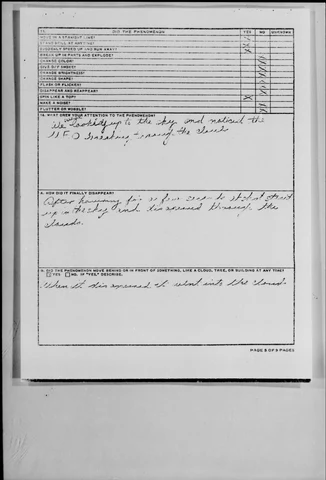 DID THE PHENOMENON YES NO UNKNOWN
MOVE IN A STRAIGHT LINE?
STAND STILL AT ANYTIME?
SUDDENLY SPEED UP AND RUN AWAY?
BREAK UP IN PARTS AND EXPLODE?
CHANGE COLOR?
GIVE OFF SMOKE?
CHANGE BRIGHTNESS?
CHANGE SHAPE?
FLASH OR FLICKER?
DISAPPEAR AND REAPPEAR?
SPIN LIKE A TOP?
MAKE A NOISE?
FLUTTER OR WOBBLE?
WHAT DREW YOUR ATTENTION TO THE PHENOMENON?
looking up to the sky and noticed the
U F O the clouds
HOW DID IT FINALLY DISAPPEAR?
After hovering for a few it shot straight
up in the sky and disappeared through the
clouds.
DID THE PHENOMENON MOVE BEHIND OR IN FRONT OF SOMETHING, LIKE A CLOUD, TREE, OR BUILDING AT ANY TIME?
YES NO. IF "YES," DESCRIBE.
When it disappeared it went into the clouds.
PAGE 5 OF 9 PAGES